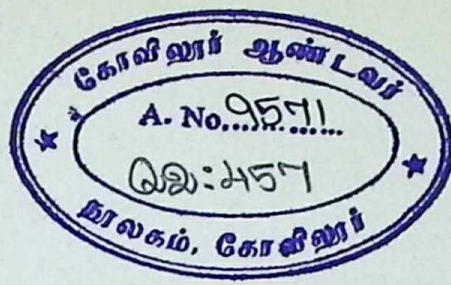 கோவிலூர் ஆண்டவர்
A. No. 9571
நூலகம், கோவிலூர்